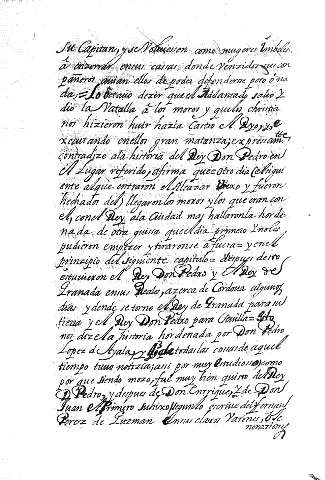 Su Capitan, y se bolviessen como mugeres
à encerrar en sus casas donde
pañeros, avian ellos de poder defenderse poco ò na
da = Lo octavo dezir que el Adelantado salio y
dio la Batalla à los moros y que los christia
nos hizieron huir hazia Castro el Rio, y
executando en ellos gran matanza, expresamte
contradize à la historia del Rey Don Pedro en
el Lugar referido, afirma que otro dia siguien
te al que entraron el Alcazar Viejo y fueron
hechados del, llegaron los moros y los que eran con
el, con el Rey, à la Ciudad mas hallaronla horde
nada de otra guisa que el dia primero y no les
pudieron empezer y tiraronse à fuera = y en el
principio del siguiente capitulo = despues desto
estuvieron el Rey Don Pedro y el Rey de
Granada en sus Reales, acerca de Cordova algunos
dias y dende se torno el Rey de Granada para su
tierra y el Rey Don Pedro para Sevilla = Esto
nos dize la historia hordenada por Don Pedro
Lopez de Ayala, y todas las cosas de aquel
tiempo tuvo noticia, assi por muy estudioso, como
por que siendo mozo, fue muy bien quisto del Rey
D. Pedro, y despues de Don Enrrique, y de Don
Juan el Primero su hixo, segun lo escrive del Fernan
Perez de Guzman en sus claros Varones, Ge
neraziones